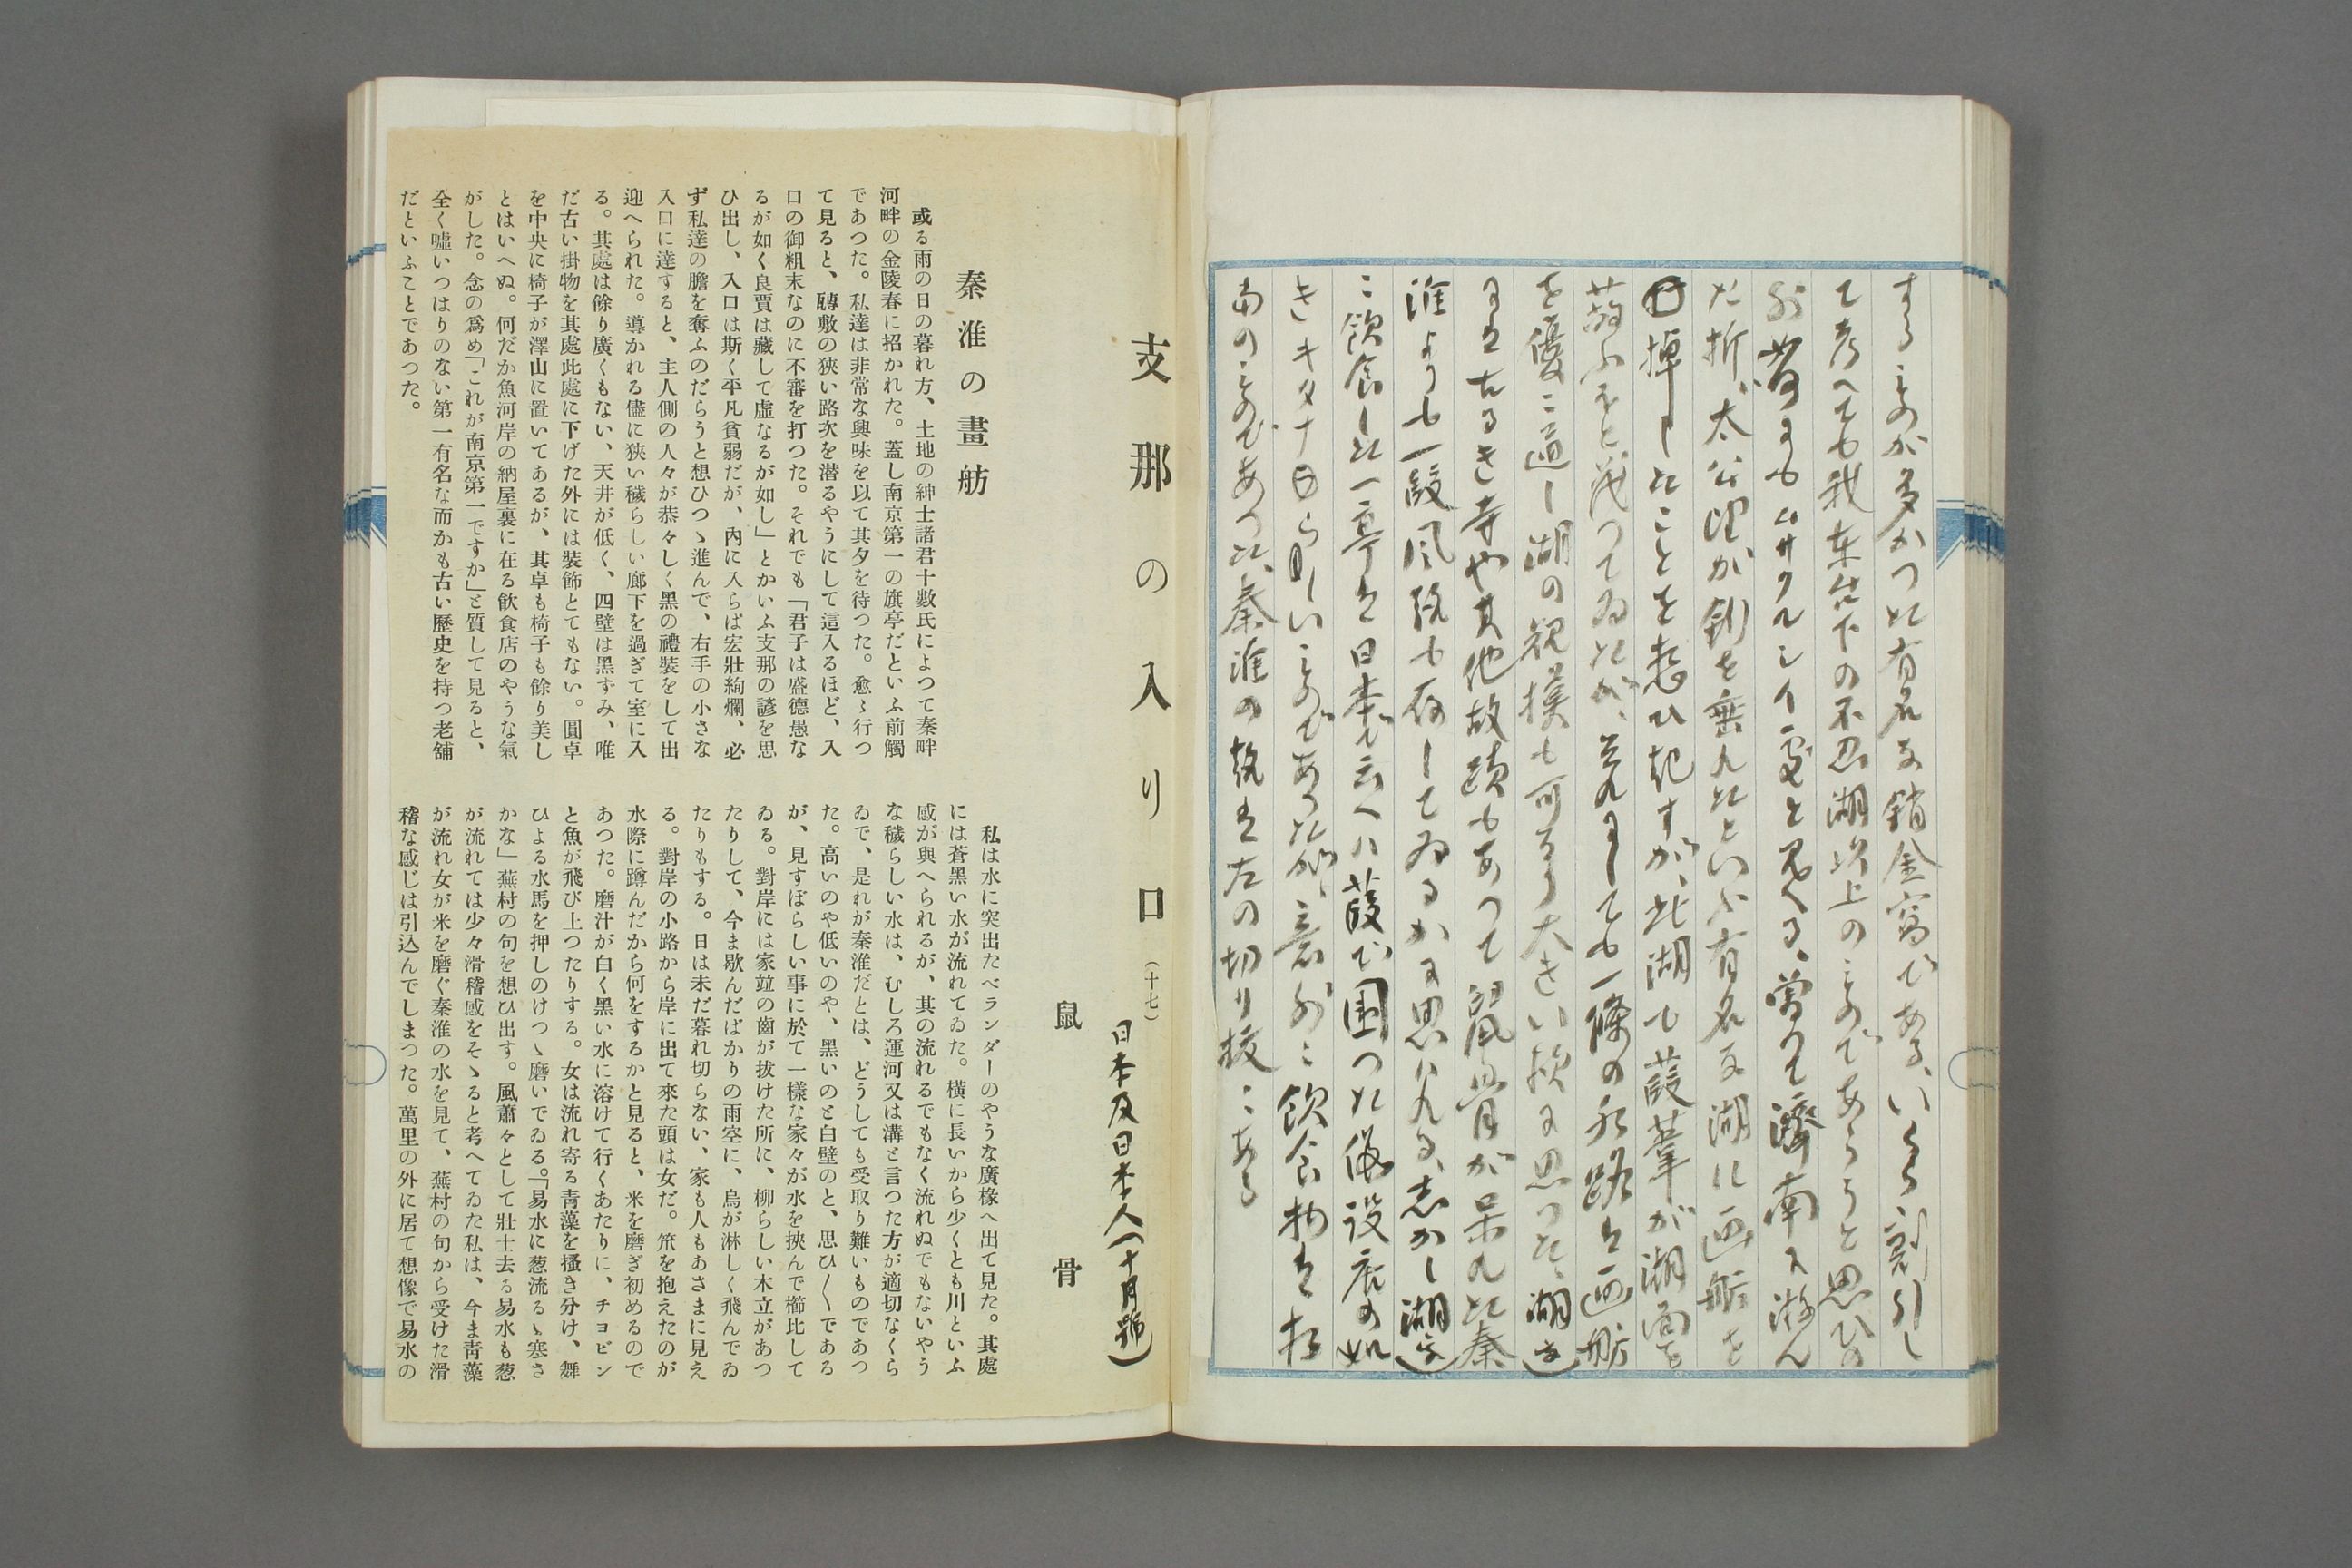 するものが多かつた有名な銷金窩である、いくら割引し
て考へても我東台下の不忍湖以上のものであらうと思ひの
外昔よりもムサクルシイ處と見へる、曾つて濟南に游ん
だ折、太公望が釣を垂れたといふ有名な湖に画舫を
棹したことを想ひ起すが、此湖も葭葦が湖面を
蔽ふほど茂つてゐたが、それにしても一條の水路は画舫
を優に通し湖の規模も可なり大きい様に思つた、湖辺
には古るき寺や其他故蹟もあつて鼠骨が呆れた秦
淮よりも一段風致も存してゐるかに思はれる、しかし湖辺
に飲食した一亭は日本で云へハ葭で囲つた仮設店の如
きキタナらしいものであつたが、意外に飲食物は存
南のものであつた、秦淮の記は左の切り抜にある
支那の入り口（十七）
日本及日本人（十月號）
鼠骨
秦淮の畫舫
或る雨の日の暮れ方、土地の紳士諸君十數氏によつて秦畔
河畔の金陵春に招かれた。蓋し南京第一の旗亭だといふ前觸
であつた。私達は非常な興味を以て其夕を待つた。愈〻行つ
て見ると、磚敷の狹い路次を潜るやうにして這入るほど、入
口の御粗末なのに不審を打つた。それでも「君子は盛德愚な
るが如く良賈は藏して虛なるが如し」とかいふ支那の諺を思
ひ出し、入口は斯く平凡貧弱だが、内に入らば宏壯絢爛、必
ず私達の膽を奪ふのだらうと想ひつゝ進んで、右手の小さな
入口に達すると、主人側の人々が恭々しく黑の禮裝をして出
迎へられた。導かれる儘に狹い穢らしい廊下を過ぎて室に入
る。其處は餘り廣くもない、天井が低く、四壁は黑ずみ、唯
だ古い掛物を其處此處に下げた外には裝飾とてもない。圓卓
を中央に椅子が澤山に置いてあるが、其卓も椅子も餘り美し
とはいへぬ。何だか魚河岸の納屋裏に在る飮食店のやうな氣
がした。念の爲め「これが南京第一ですか」と質して見ると、
全く噓いつはりのない第一有名な而かも古い歷史を持つ老舗
だといふことであつた。
私は水に突出たベランダーのやうな廣椽へ出て見た。其處
には蒼黑い水が流れてゐた。橫に長いから少くとも川といふ
感が與へられるが、其の流れるでもなく流れぬでもないやう
な穢らしい水は、むしろ運河又は溝と言つた方が適切なくら
ゐで、是れが秦淮だとは、どうしても受取り難いものであつ
た。高いのや低いのや、黑いのと白壁のと、思ひ〱である
が、見すぼらしい事に於て一樣な家々が水を挾んで櫛比して
ゐる。對岸には家竝の齒が拔けた所に、柳らしい木立があつ
たりして、今ま歇んだばかりの雨空に、烏が淋しく飛んでゐ
たりもする。日は未だ暮れ切らない、家も人もあさまに見え
る。對岸の小路から岸に出て來た頭は女だ。笊を抱えたのが
水際に蹲んだから何をするかと見ると、米を磨ぎ初めるので
あつた。磨汁が白く黑い水に溶けて行くあたりに、チヨビン
と魚が飛び上つたりする。女は流れ寄る靑藻を搔き分け、舞
ひよる水馬を押しのけつゝ磨いでゐる。「易水に葱流るゝ寒さ
かな」蕪村の句を想ひ出す。風蕭々として壯士去る易水も葱
が流れては少々滑稽感をそゝると考へてゐた私は、今ま靑藻
が流れ女が米を磨ぐ秦淮の水を見て、蕪村の句から受けた滑
稽な感じは引込んでしまつた。萬里の外に居て想像で易水の